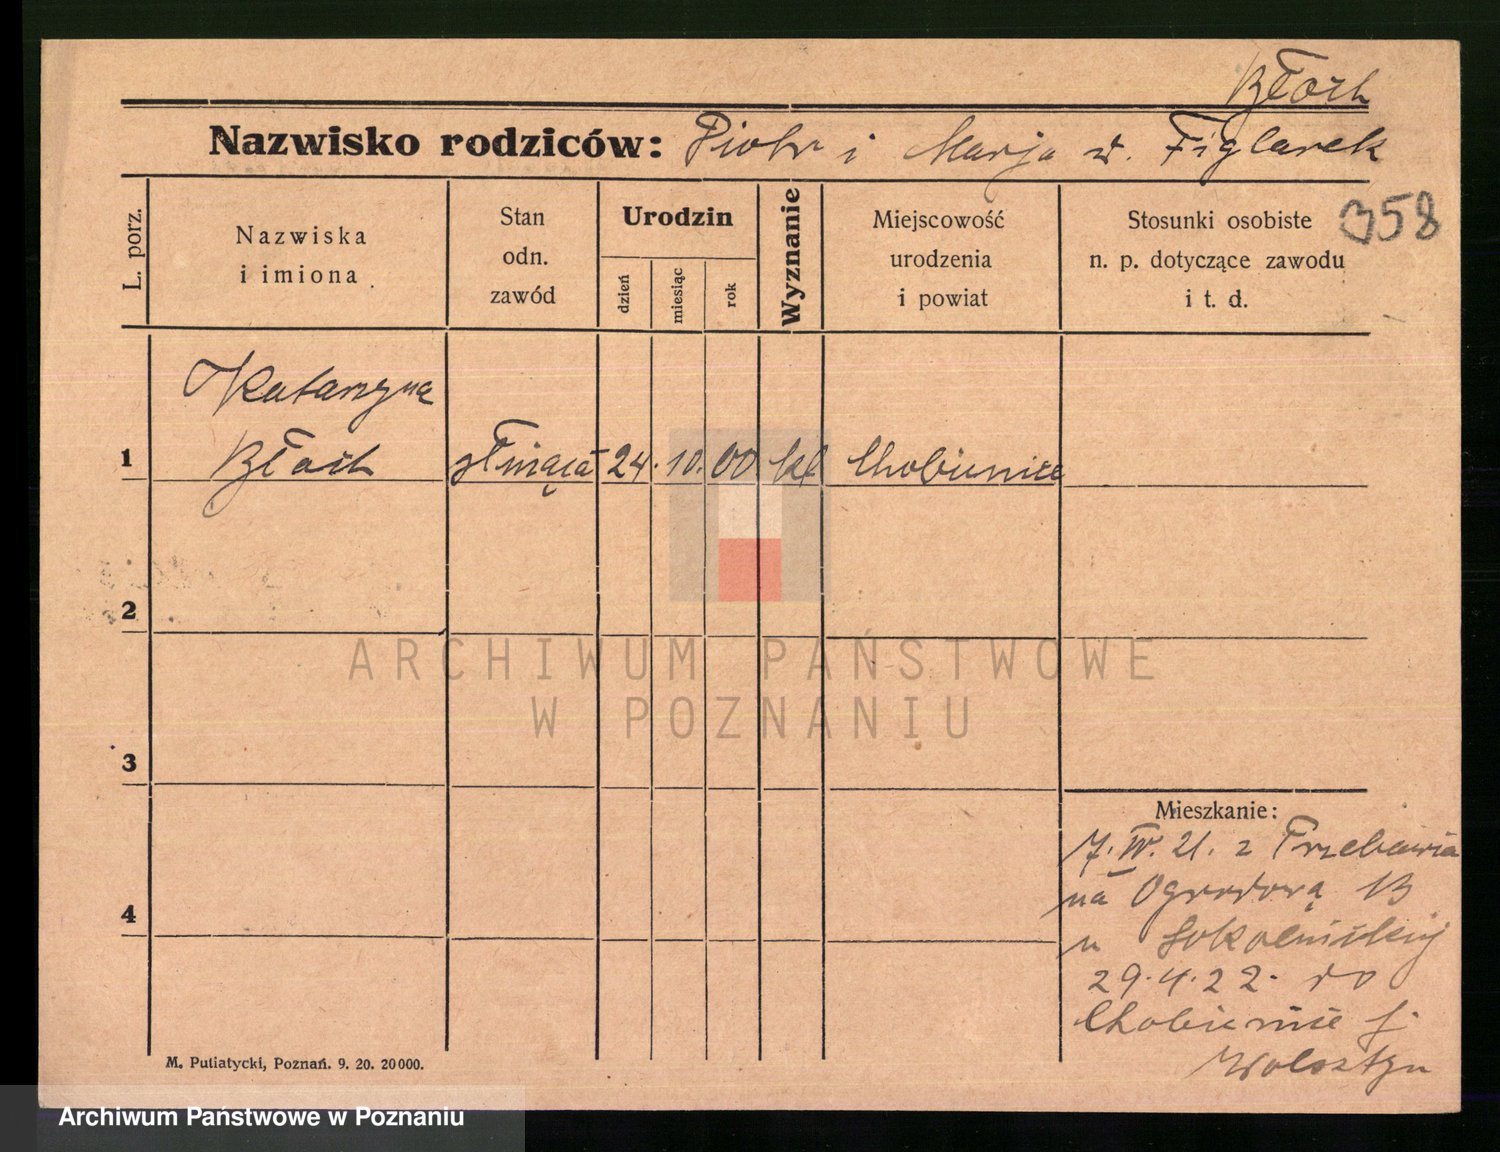 Błoch
Nazwisko rodziców: Piotr i Marja d. Figlarek
L. porz.
Nazwiska
i imiona
Stan
odn.
zawód
Urodzin
dzień
miesiąc
rok
Wyznanie
Miejscowość
urodzenia
i powiat
Stosunki osobiste
n. p. dotyczące zawodu
i t. d.
358
Katarzyna
1 Błoch służąca 24. 10. 00 kt Chobienice
2
ARCHIWUM PAŃSTWOWE
W POZNANIU
3
Mieszkanie:
7. IV. 21. z
na Ogrodową 13
u Sokolnickiej
29.4.22. do
Chobienice
Wolsztyn
4
M. Putiatycki, Poznań. 9. 20. 20000.
Archiwum Państwowe w Poznaniu